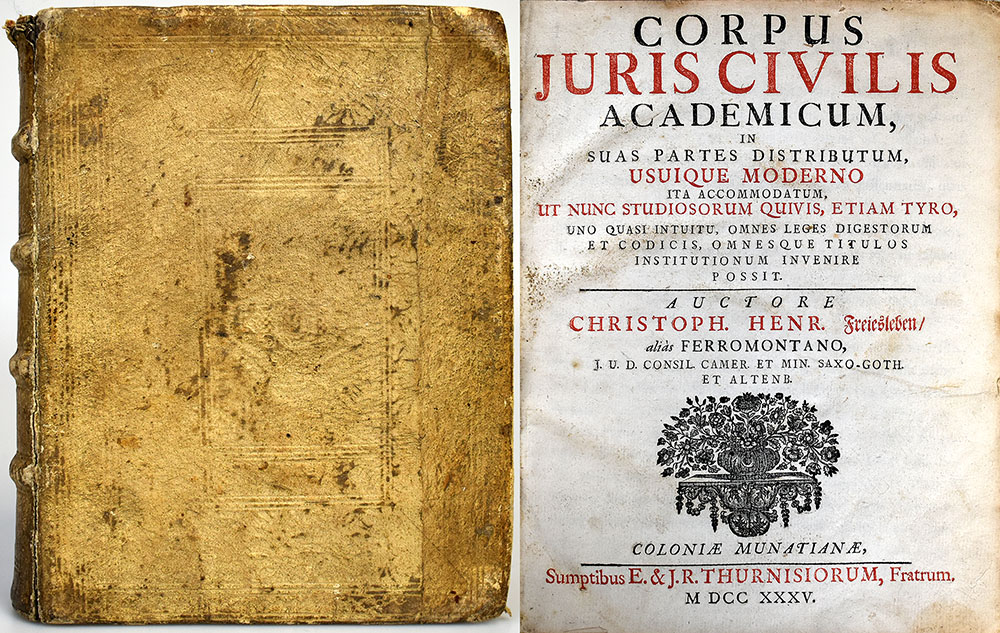 CORPUS
JURIS CIVILIS
ACADEMICUM,
IN
SUAS PARTES DISTRIBUTUM,
USUIQUE MODERNO
ITA ACCOMMODATUM,
UT NUNC STUDIOSORUM QUIVIS, ETIAM TYRO,
UNO QUASI INTUITU, OMNES LEGES DIGESTORUM
ET CODICIS, OMNESQUE TITULOS
INSTITUTIONUM INVENIRE
POSSIT.
AUCTORE
CHRISTOPH. HENR. Freiesleben/
aliàs FERROMONTANO,
J. U. D. CONSIL. CAMER. ET MIN. SAXO-GOTH.
ET ALTENB.
COLONIÆ MUNATIANÆ,
Sumptibus E. & J. R. THURNISIORUM, Fratrum.
M DCC XXXV.